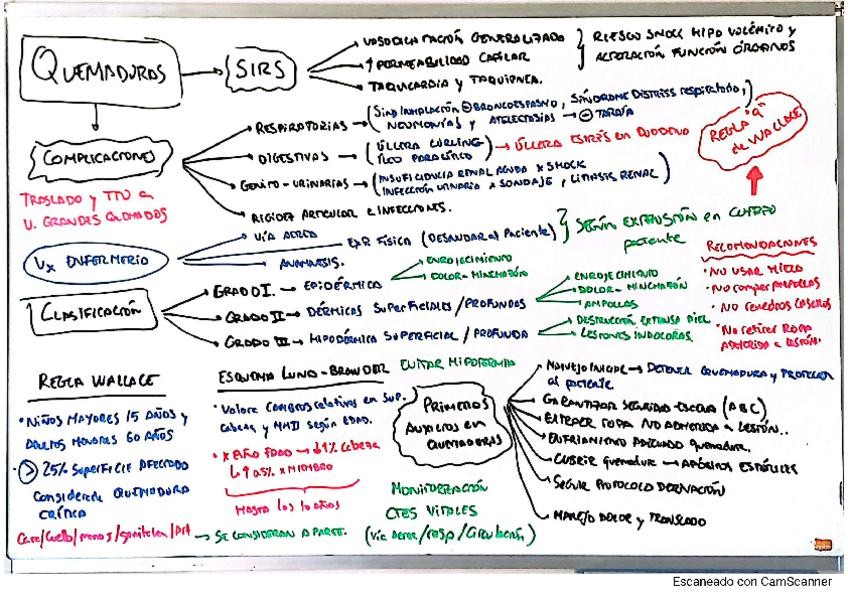 QUEMADURAS → SIRS
→ VASODILATACIÓN GENERALIZADA
→ ↑ PERMEABILIDAD CAPILAR
→ TAQUICARDIA y TAQUIPNEA.
} RIESGO SHOCK HIPOVOLÉMICO y
ALTERACIÓN FUNCIÓN ÓRGANOS
COMPLICACIONES
→ RESPIRATORIAS → BRONCOESPASMO, SÍNDROME DISTRESS respiratorio,
NEUMONÍAS y ATELECTASIAS → TARDÍA
→ DIGESTIVAS → (ÚLCERA CURLING → ÚLCERA ESTRÉS en DUODENO
ÍLEO PARALÍTICO)
→ GENITO-URINARIAS → (INSUFICIENCIA RENAL AGUDA x SHOCK
INFECCIÓN URINARIA x SONDAJE, LITIASIS RENAL)
→ RIGIDEZ ARTICULAR e INFECCIONES.
REGLA "9"
de WALLACE
TRASLADO y TTO a
U. GRANDES QUEMADOS
Vx ENFERMERÍA
→ VÍA AÉREA
→ EXP. FÍSICA (DESNUDAR al PACIENTE)
→ ANAMNESIS.
} SEGÚN EXTENSIÓN en CUERPO
paciente
CLASIFICACIÓN
→ GRADO I. → EPIDÉRMICA
→ ENROJECIMIENTO
→ DOLOR-HINCHAZÓN
→ GRADO II → DÉRMICAS SUPERFICIALES/PROFUNDAS
→ ENROJECIMIENTO
→ DOLOR-HINCHAZÓN
→ AMPOLLAS
→ GRADO III → HIPODÉRMICA SUPERFICIAL/PROFUNDA
→ DESTRUCCIÓN EXTENSA PIEL
→ LESIONES INDOLORAS
RECOMENDACIONES
• NO USAR HIELO
• NO romper AMPOLLAS
• NO remedios CASEROS
• NO retirar ROPA
ADHERIDA a LESIÓN.
REGLA WALLACE
• NIÑOS MAYORES 15 AÑOS y
ADULTOS MENORES 60 AÑOS
> 25% SUPERFICIE AFECTADA
CONSIDERADA QUEMADURA
CRÍTICA
Cara/Cuello/manos/genitales/ → SE CONSIDERAN A PARTE.
ESQUEMA LUND-BROWDER
• Valora CAMBIOS relativos en SUP.
Cabeza y MMII SEGÚN EDAD.
• x AÑO EDAD → ↓1% CABEZA
↳ ↑ 0.5% x MIEMBRO
HASTA los 10 AÑOS
EVITAR HIPOTERMIA
PRIMEROS
AUXILIOS en
QUEMADURAS
→ MANEJO INICIAL → DETENER QUEMADURA y PROTEGER
al paciente
→ GARANTIZAR SEGURIDAD ESCENA (ABC)
→ EXTRAER ROPA NO ADHERIDA a LESIÓN..
→ ENFRIAMIENTO ADECUADO quemadura.
→ CUBRIR quemadura → APÓSITOS ESTÉRILES
→ SEGUIR PROTOCOLO DERIVACIÓN
→ MANEJO DOLOR y TRASLADO
MONITORIZACIÓN
CTES VITALES
(Vía aérea/resp/Circulación)
Escaneado con CamScanner